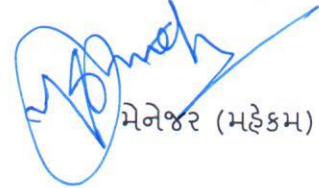 મેનેજર (મહેકમ)